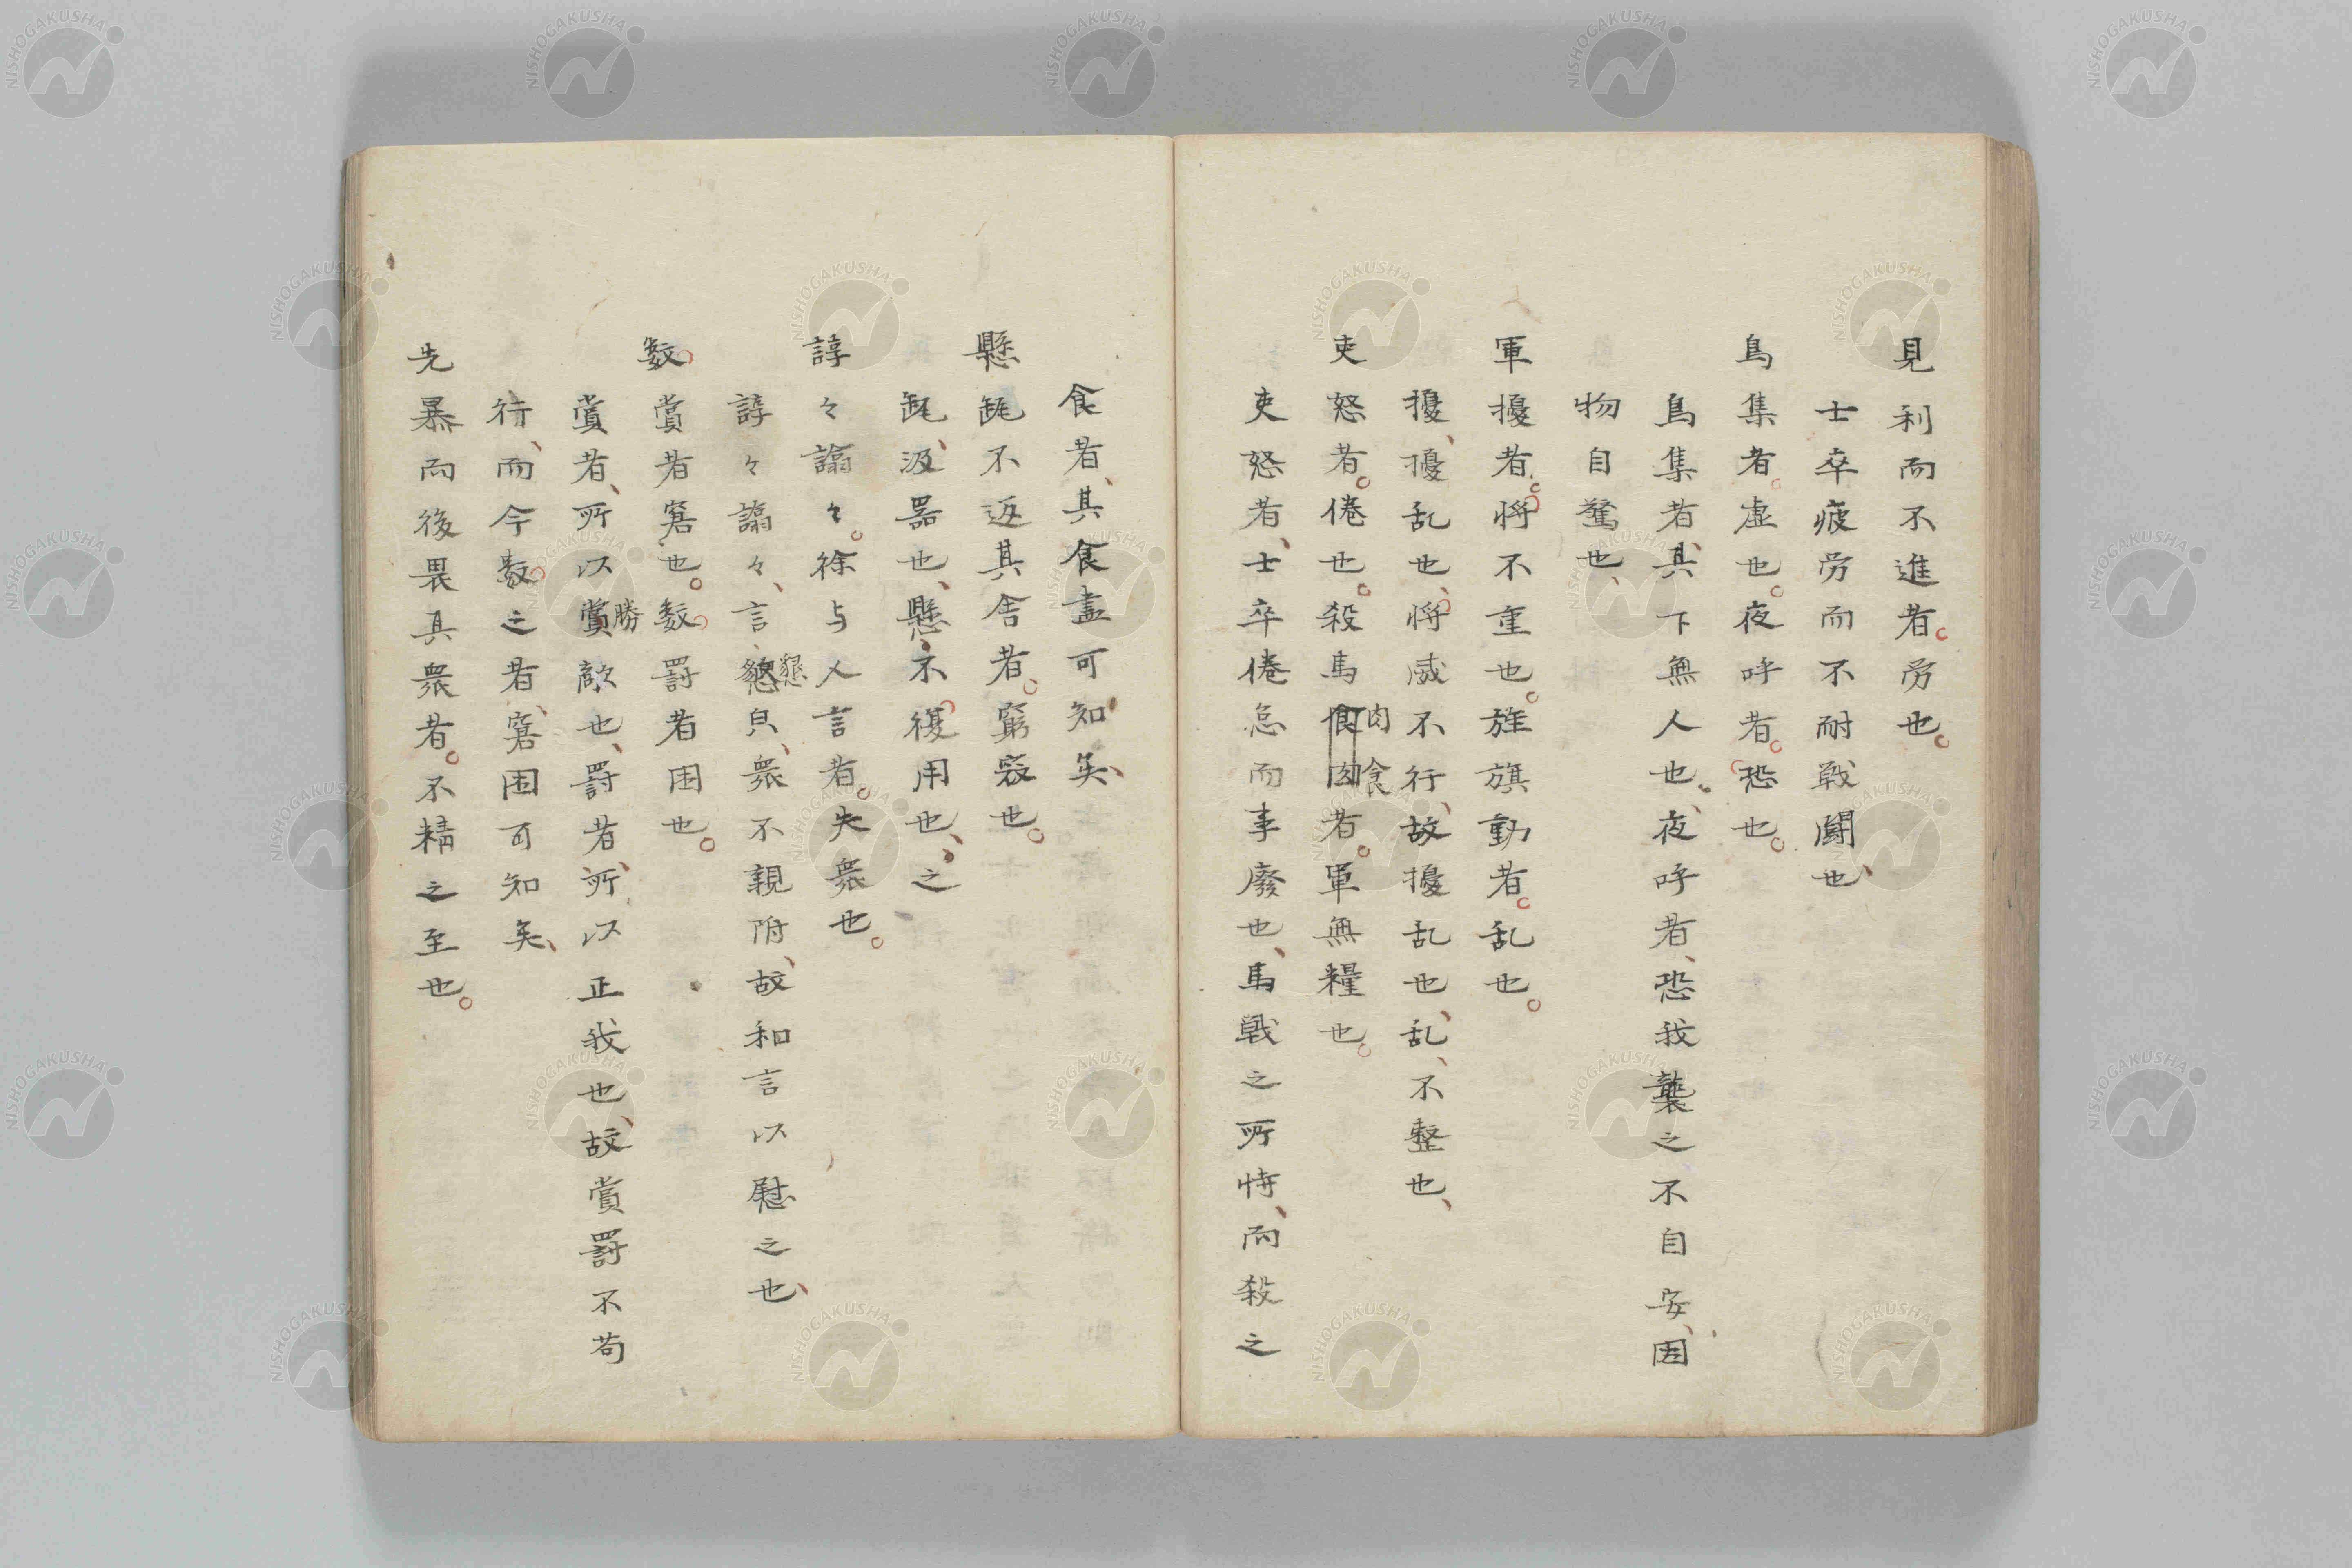 見利而不進者。労也。
士卒疲労而不耐戦闘也、
鳥集者。虚也。夜呼者。恐也。
鳥集者、其下無人也、夜呼者、恐我襲之不自安、因
物自驚也、
軍擾者。将不重也。旌旗動者。乱也。
擾、擾乱也、将威不行、故擾乱也、乱、不整也、
吏怒者。倦也。殺馬食肉者。軍無糧也。
肉食
吏怒者、士卒倦怠而事廃也、馬戦之所恃、而殺之
食者、其食盡可知矣、
懸缻不返其舎者。窮寇也。
缻、汲器也、懸、不復用也、之
諄々謵々。徐与人言者。失衆也。
諄々謵々、言、懇皃、衆不親附、故和言以慰之也、
懇
数賞者窘也。数罰者困也。
賞者、所以賞敵也、罰者、所以正我也、故賞罰不苟
勝
行、而今数之者、窘困可知矣、
先暴而後畏其衆者。不精之至也。
NISHOGAKUSHA